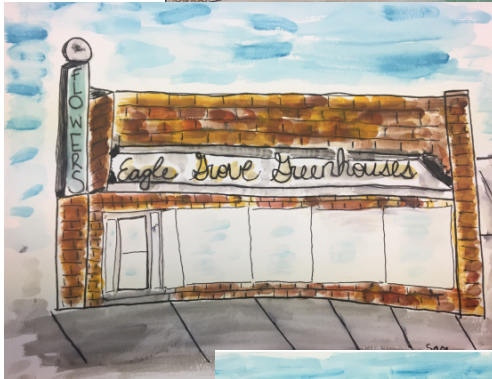 FLOWERS
Eagle Grove Greenhouses